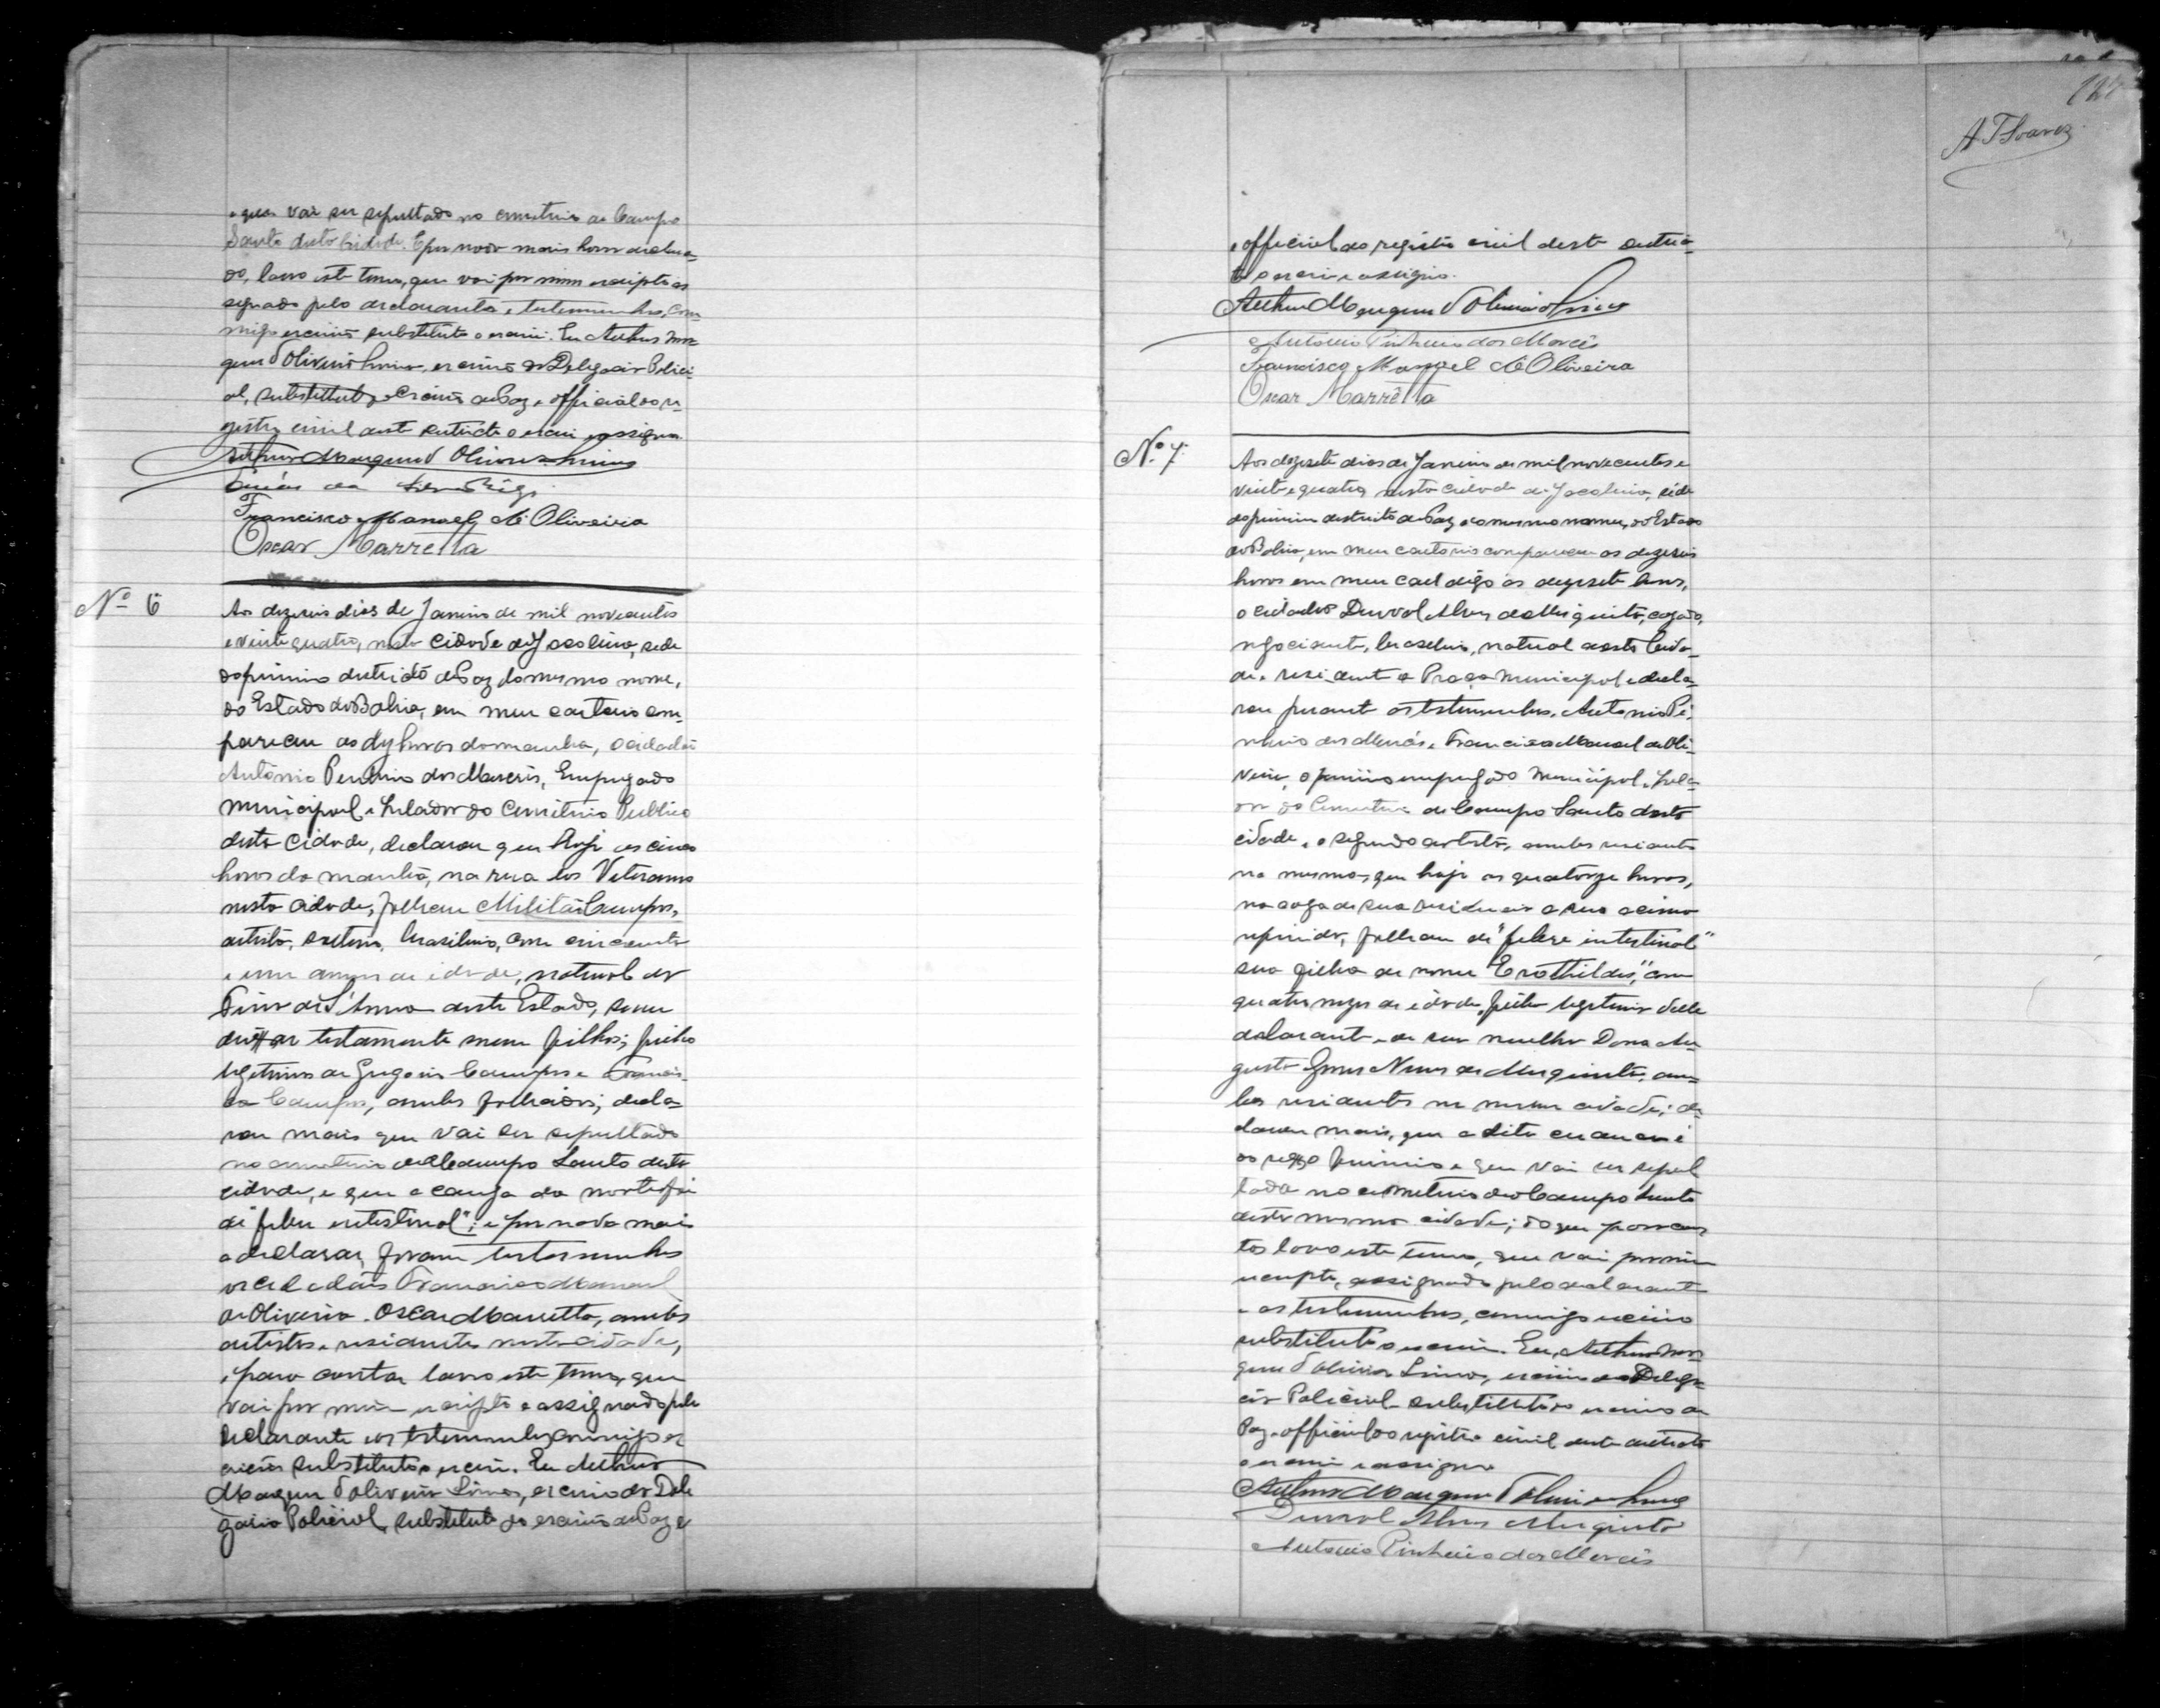 o qual vai ser sepultado no cemiterio do Campo
Santo desta cidade. E por nada mais haver declara-
do, lavro este termo, que vai por mim escripto as
signado pelo declarante e testemunhas, com
migo escrivão substituto o escrevi. Eu Arthur Mar
ques d'Oliveira Lima, escrivão da Delegacia Polici-
al, substituto do Escrivão de Paz e official do re-
gistro civil deste districto o escrevi e assigno.
Arthur Marques d'Oliveira Lima
da
Francisco Manoel de Oliveira
Oscar Marretta
Nº 6
Aos dezeseis dias de Janeiro de mil novecentos
e vinte quatro, nesta cidade de Jacobina, sede
do primeiro districto de Paz do mesmo nome,
do Estado da Bahia, em meu cartorio com-
pareceu as dez horas da manhã, o cidadão
Antonio Pinheiro das Mercês, Empregado
municipal e Zelador do Cemiterio Publico
desta Cidade, declarou que hoje as cinco
horas da manhã, na rua dos Veteranos
nesta cidade, falleceu Militão Campos,
artista, solteiro, brasileiro, com cincoenta
e um annos de idade, natural da
Feira de S. Anna deste Estado, sem
deixar testamento nem filhos; filho
legitimo de Gregorio Campos e Francis-
ca Campos, ambos fallecidos; decla-
rou mais que vai ser sepultado
no cemiterio do Campo Santo desta
cidade, e que a causa da morte foi
de "febre intestinal"; e por nada mais
a declarar, foram testemunhas
os cidadãos Francisco Manoel
de Oliveira e Oscar Marretta, ambos
artistas e residentes nesta cidade,
e para constar lavro este termo, que
vai por mim escripto e assignado pelo
declarante e as testemunhas commigo es
crivão substituto o escrevi. Eu Arthur
Marques d'Oliveira Lima, escrivão da Dele
gacia Policial, substituto do escrivão de Paz e
A T Soares
e official do registro civil deste distric-
to o escrevi e assigno.
Arthur Marques d'Oliveira Lima
Antonio Pinheiro das Mercês
Francisco Manoel de Oliveira
Oscar Marretta
Nº 7.
Aos dezesete dias de Janeiro de mil novecentos e
vinte e quatro, nesta cidade de Jacobina, séde
do primeiro districto de Paz do mesmo nome, do Estado
da Bahia, em meu cartorio compareceu as dezeseis
horas em meu cart digo as dezesete horas,
o cidadão Durval Alves de Mesquita, casado,
negociante, brasileiro, natural desta Cida-
de, residente a Praça Municipal e decla-
rou perante as testemunhas, Antonio Pi-
nheiro das Mercês e Francisco Manoel de Oli-
veira, o primeiro empregado municipal e Zela-
dor do Cemiterio do Campo Santo desta
cidade, e o segundo artista, ambos residentes
na mesma, que hoje as quatorze horas,
na casa de sua residencia a rua acima
referida, falleceu de "febre intestinal"
sua filha de nome "Erothildes", com
quatro mezes de idade, filha legitima delle
declarante e de sua mulher Dona Au-
gusta Gomes Nunes de Mesquita, am-
bos residentes na mesma cidade; de-
clarou mais, que a dita creança é
do sexo feminino e que vai ser sepul
tada no cemiterio do Campo Santo
desta mesma cidade; do que para cons
tar lavro este termo, que vai por mim
escripto, assignado pelo declarante
e as testemunhas, commigo escrivão
substituto o escrevi. Eu, Arthur Mar-
ques d'Oliveira Lima, escrivão da Delega-
cia Policial substituto do escrivão de
Paz e official do registro civil deste districto
o escrevi e assigno
Arthur Marques d'Oliveira Lima
Durval Alves Mesquita
Antonio Pinheiro das Mercês